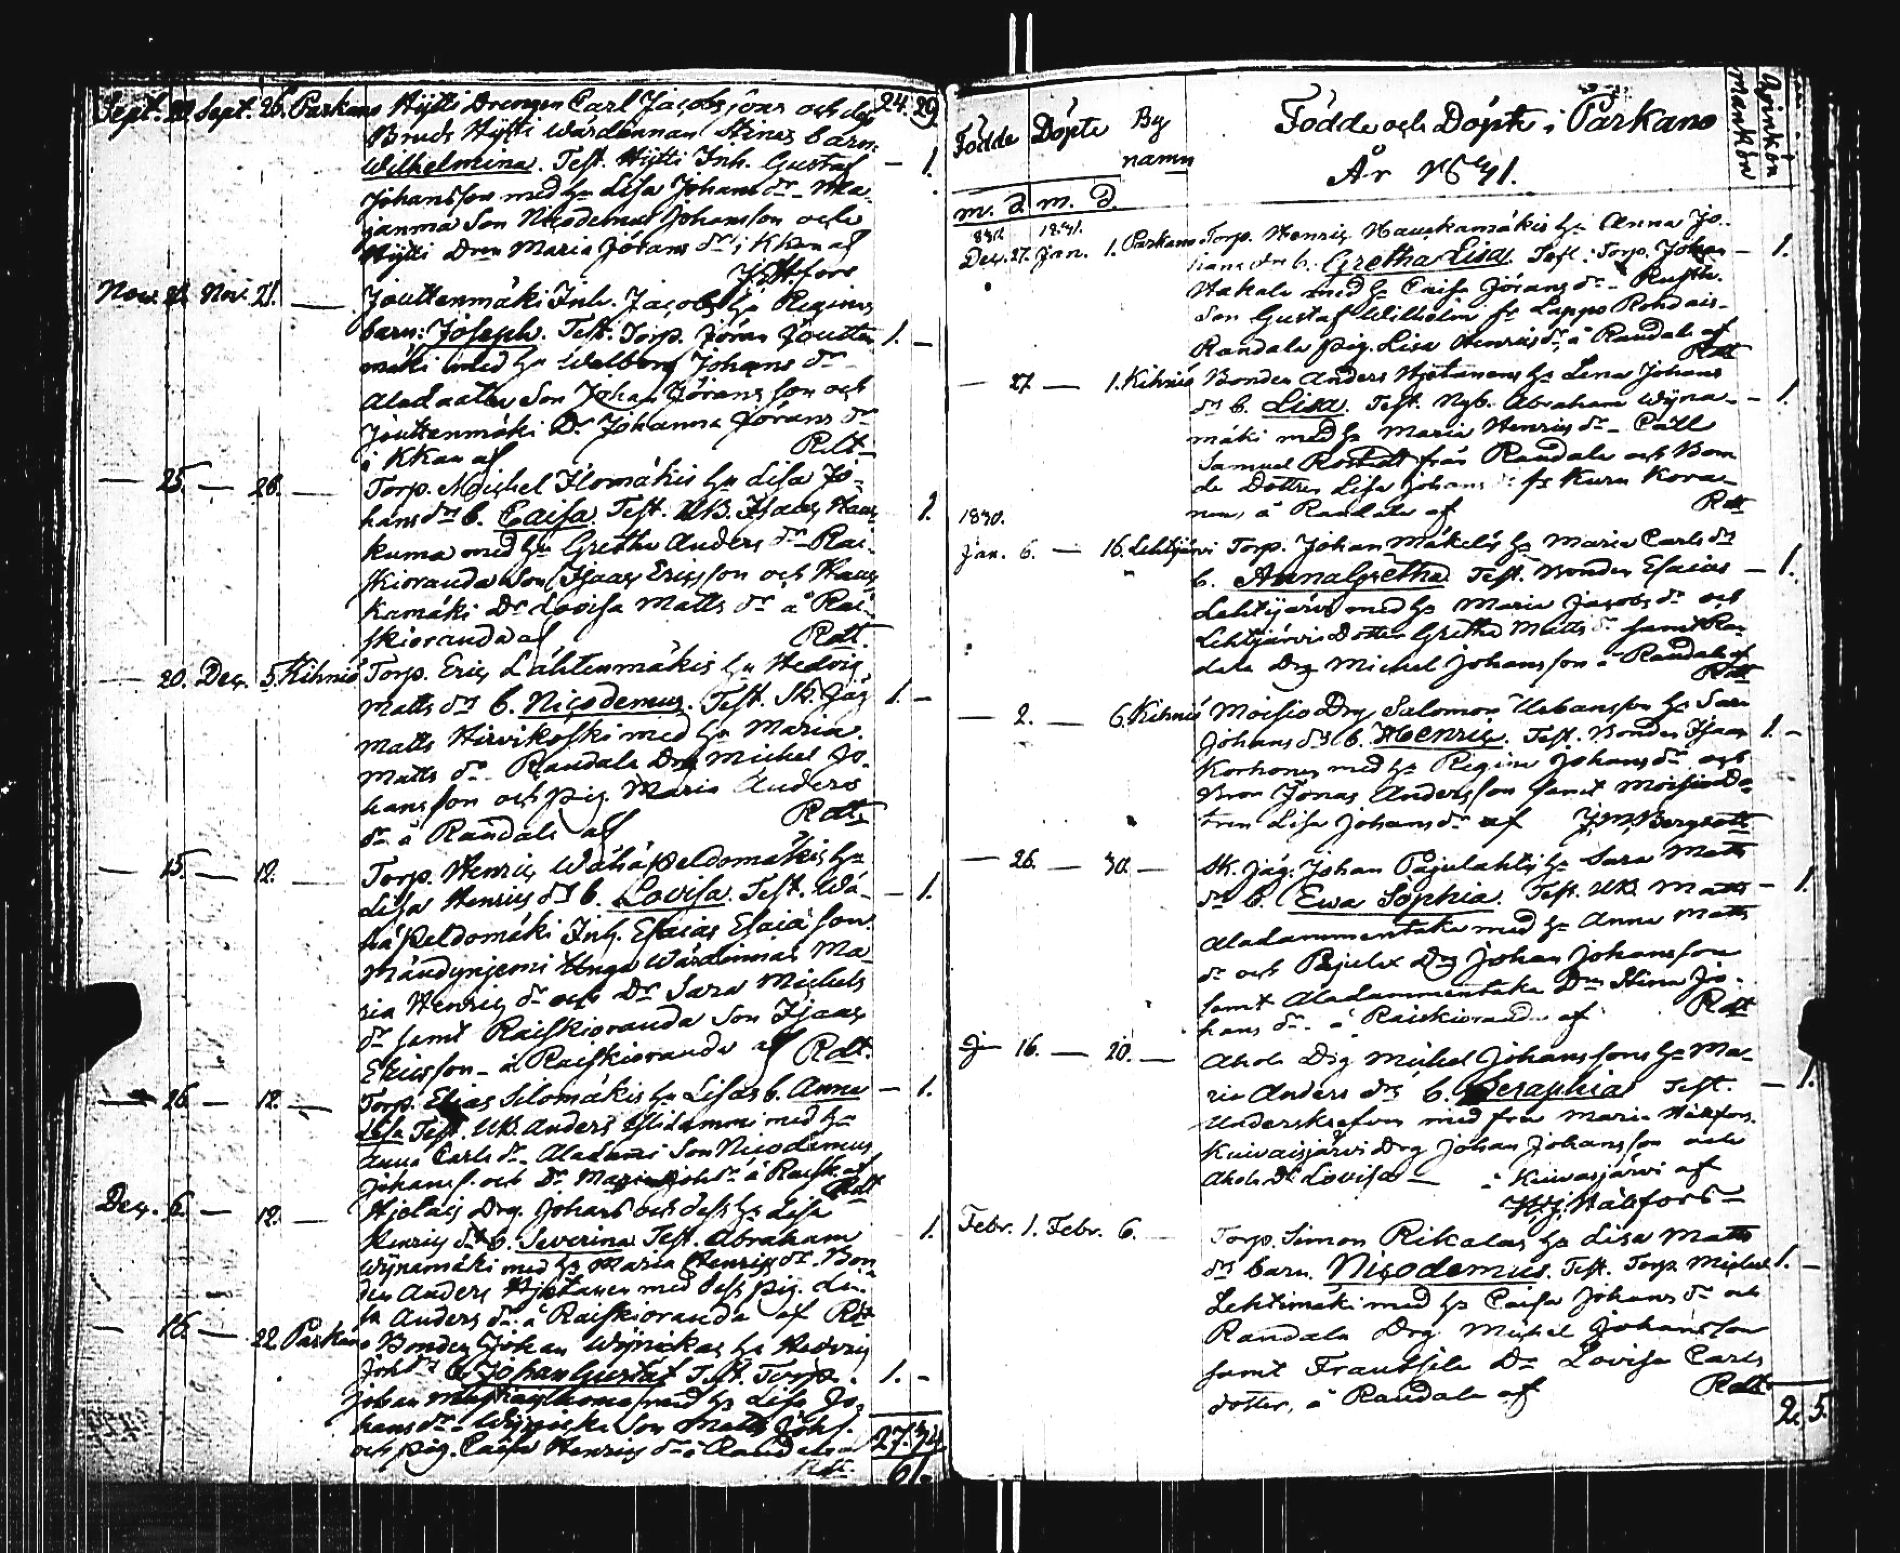 Sept. 20. Sept. 26. Parkano Hytti Drengen Carl Jacobssons och dess 24. 29
Bruds Hytti Wärdinnan Stinas barn
Wilhelmina. Test. Hytti Inh. Gustaf — 1.
Johansson med Hu Lisa Johans dr Ma-
janmä Son Nicodemus Johansson och
Hytti Drn Maria Görans dr i Kkan af
Nov. Nov. 21. — Jouttenmäki Inh. Jacobs Hu Reginas
barn: Joseph. Test. Torp. Jöran Joutten- 1. —
mäki med Hu Walborg Johans dr
Son Johan Göransson och
Jouttenmäki Dr Johanna Görans dr
i Kkan af Rdt
— 25. — 26. — Torp. Michel Ilomäkis Hu Lisa Jo-
hans drs b. Caisa. Test. UB. Isaac Haas- 1.
kuma med Hu Gretha Anders dr Rai-
skioranda Son Isaac Ericsson och Hau-
kamäki Dr Lovisa Matts dr å Rai-
skioranda af Rdt.
— 20. Dec. 5. Kihniö Torp. Eric Lähtenmäkis Hu Hedvig
Matts drs b. Nicodemus. Test. Sk. Jäg 1. —
Matts Hirvikoski med Hu Maria
Matts dr Randala Drg Michel Jo-
hansson och pig. Maria Anders
dr å Randala af Rdt
— 15. — 12. — Torp. Henric Wähäpeldomäkis Hu
Lisa Henrics drs b. Lovisa. Test. Wä- — 1.
häpeldomäki Inh. Esaias Esaiasson
Unga Wärdinnas Ma-
ria Henrics dr och Dr Sara Michels
dr samt Raiskioranda Son Isaac
Ericsson å Raiskioranda af Rdt.
26. — 12. — Torp. Elias Silomäkis Hu Lisas b. Anna — 1.
Lisa Test. UB. Anders Ylidammi med Hu
Anna Carls dr Aladami Son Nicodemus
Johanss. och Dr Maria Joh dr å Raisk af
Rdt
Dec. 6. — 12. — Drg. Johans och dess Hu Lisa
Henrics drs b. Severina Test. Abraham 1.
Wynamäki med Hu Maria Henrics dr Bon-
den Anders Hjetanen med dess pig. Li-
sa Anders dr å Raiskioranda af Rdt
— 16. — 22. Parkano Bonden Johan Hu Hedvig
Joh drs b. Johan Gustaf Test. Torp. 1. —
Johan med Hu Lisa Jo-
hans dr Son Matts Joh
och pig. Caisa Henrics dr å Randala af 27. 34
Rdt. 61.
Födde Döpte By namn Födde och Döpte i Parkano Mankön Qvinkön
År 1841.
m. D. m. D.
1840. 1841.
Dec. 27. Jan. 1. Parkano Torp. Henric Hauskamäkis Hu Anna Jo-
hans drs b. Gretha Lisa. Test. Torp. Johan — 1.
Hakala med Hu Caisa Görans dr Rusth.
Son Gustaf Wilhelm fr Lappo
Randala pig. Lisa Henrics dr å Randala af
Rdt
— 27 — 1. Kihniö Bonden Anders Hjetanens Hu Lena Johans
drs b. Lisa. Test. Nyb. Abraham Wyna- — 1.
mäki med Hu Maria Henrics dr Cäll
Samuel från Randala och Bon-
de Dottren Lisa Johans fr Kuru Kora-
nen, å Randala af Rdt
1840.
Jan. 6. — 16. Lehtijärvi Torp. Johan Mäkeläs Hu Maria Carls drs
b. Anna Gretha Test. Bonden Esaias — 1.
Lehtijärvi med Hu Maria Jacobs dr och
Lehtijärvi Dotter Gretha Matts dr samt Ran-
dala Drg Michel Johansson å Randala af
Rdt
— 2. — 6. Kihniö Moisio Drg Salomon Urbansson Hu Sara
Johans drs b. Henric. Test. Bonden Isaac 1. —
Korhonen med Hu Regina Johans dr och
Bron Jonas Andersson samt Moisio Do-
tren Lisa Johans dr af J. M. Bergroth
— 26. — 30. — Sk. Jäg. Johan Pajulahtis Hu Sara Matts
dr b. Ewa Sophia. Test. UB. Matts — 1.
Aladammentaka med Hu Anna Matts
dr och Drg Johan Johansson
samt Aladammentaka Drn Stina Jo-
hans dr å Raiskioranda af Rdt
16. — 20. — Ahola Drg Michel Johanssons Hu Ma-
ria Anders drs b. Seraphia Test. — 1.
Underskrefven med fru Maria Hällfors.
Kuivaisjärvi Drg Johan Johansson och
Ahola Dr Lovisa — å Kuivasjärvi af
Hällfors
Febr. 1. Febr. 6. — Torp. Simon Rikalas Hu Lisa Matts
drs barn. Nicodemus. Test. Torp Michel 1. —
Lehtimäki med Hu Caisa Johans dr och
Randala Drg Michel Johansson
samt Frantsila Dr Lovisa Carls
dotter, å Randala af Rdt
2. 5.